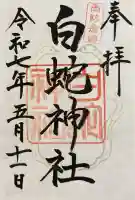 奉拝
白蛇神社
令和七年五月十一日